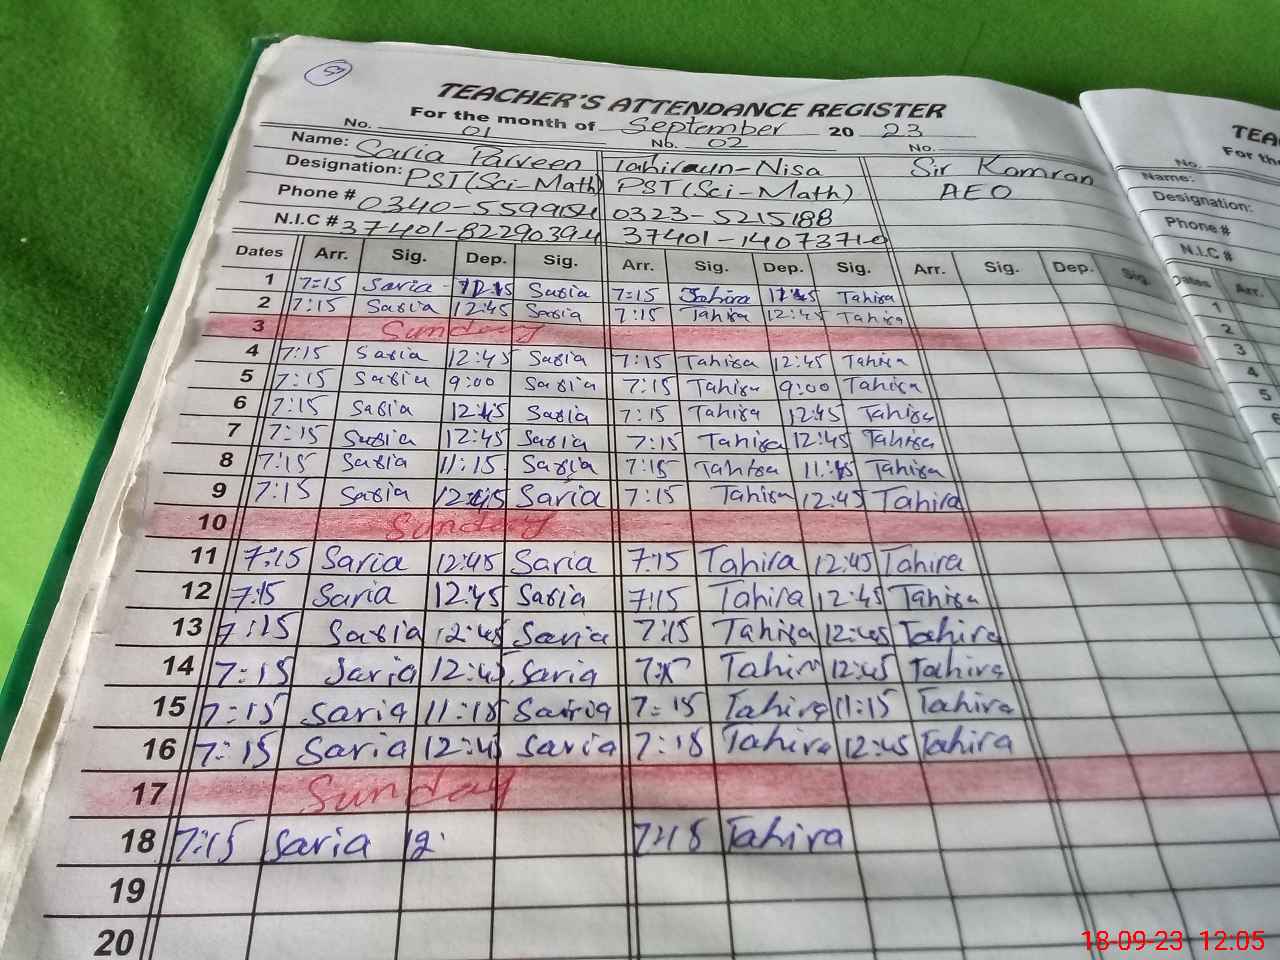 TEACHER'S ATTENDANCE REGISTER
For the month of September 20 23
No. 01 No. 02 No.
Name: Saria Parveen Tahiraun-Nisa Sir Kamran
Designation: PST(Sci-Math) PST(Sci-Math) AEO
Phone # 0323-5215188
N.I.C #
Dates Arr. Sig. Dep. Sig. Arr. Sig. Dep. Sig. Arr. Sig. Dep. Sig.
1 7:15 Saria Saria 7:15 Tahira Tahira
2 7:15 Saria 12:45 Saria 7:15 Tahira 12:45 Tahira
3 Sunday
4 7:15 Saria 12:45 Saria 7:15 Tahira 12:45 Tahira
5 7:15 Saria 9:00 Saria 7:15 Tahira 9:00 Tahira
6 7:15 Saria 12:45 Saria 7:15 Tahira 12:45 Tahira
7 7:15 Saria 12:45 Saria 7:15 Tahira 12:45 Tahira
8 7:15 Saria 11:15 Saria 7:15 Tahira 11:15 Tahira
9 7:15 Saria 12:45 Saria 7:15 Tahira 12:45 Tahira
10 Sunday
11 7:15 Saria 12:45 Saria 7:15 Tahira 12:45 Tahira
12 7:15 Saria 12:45 Saria 7:15 Tahira 12:45 Tahira
13 7:15 Saria 12:45 Saria 7:15 Tahira 12:45 Tahira
14 7:15 Saria 12:45 Saria Tahira 12:45 Tahira
15 7:15 Saria 11:15 Saria 7:15 Tahira 11:15 Tahira
16 7:15 Saria 12:45 Saria 7:15 Tahira 12:45 Tahira
17 Sunday
18 7:15 Saria 12: 7:15 Tahira
19
20
No.
Name:
Designation:
Phone #
N.I.C #
Dates Arr.
1
2
3
4
5
6
18-09-23 12:05